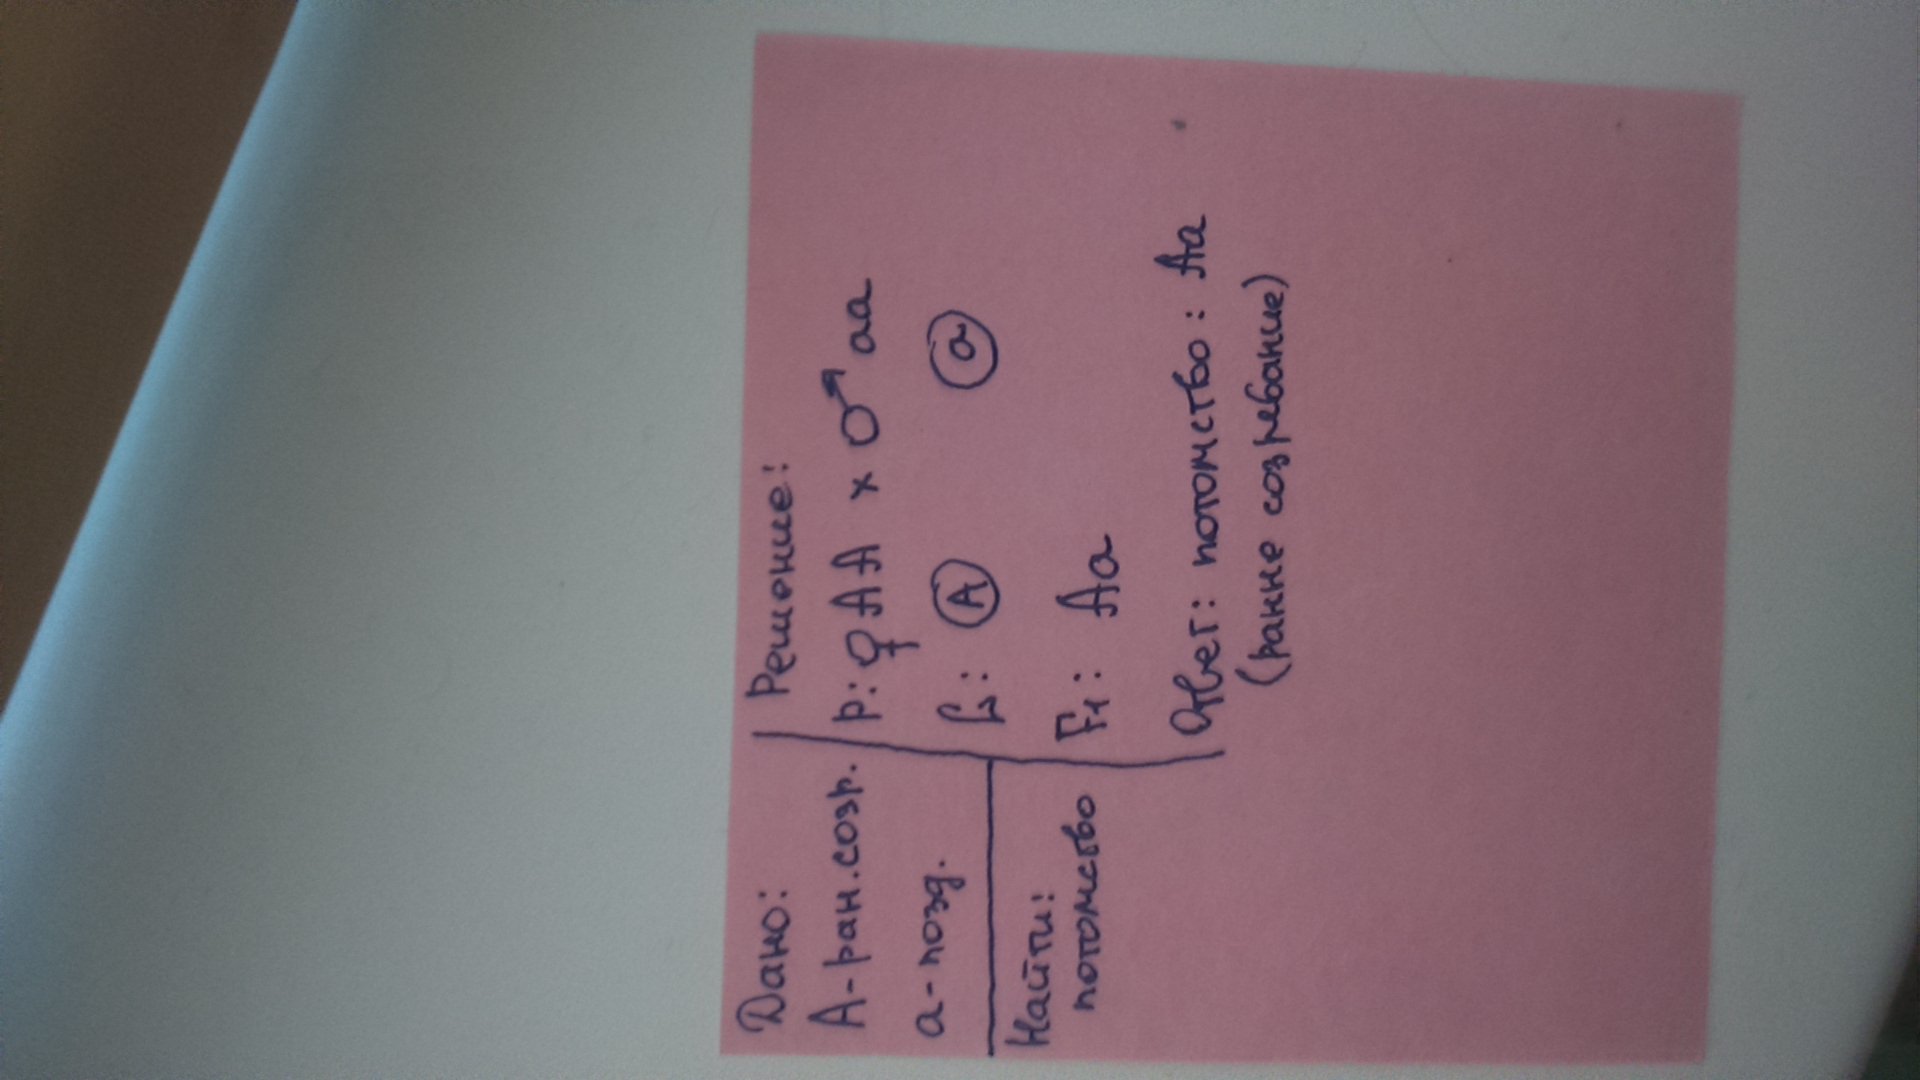 Дано:
А-ран.созр.
а-позд.
Найти:
потомство
Решение:
р: ♀ АА х ♂ аа
G: А а
F1: Аа
Ответ: потомство: Аа
(ранне созревание)